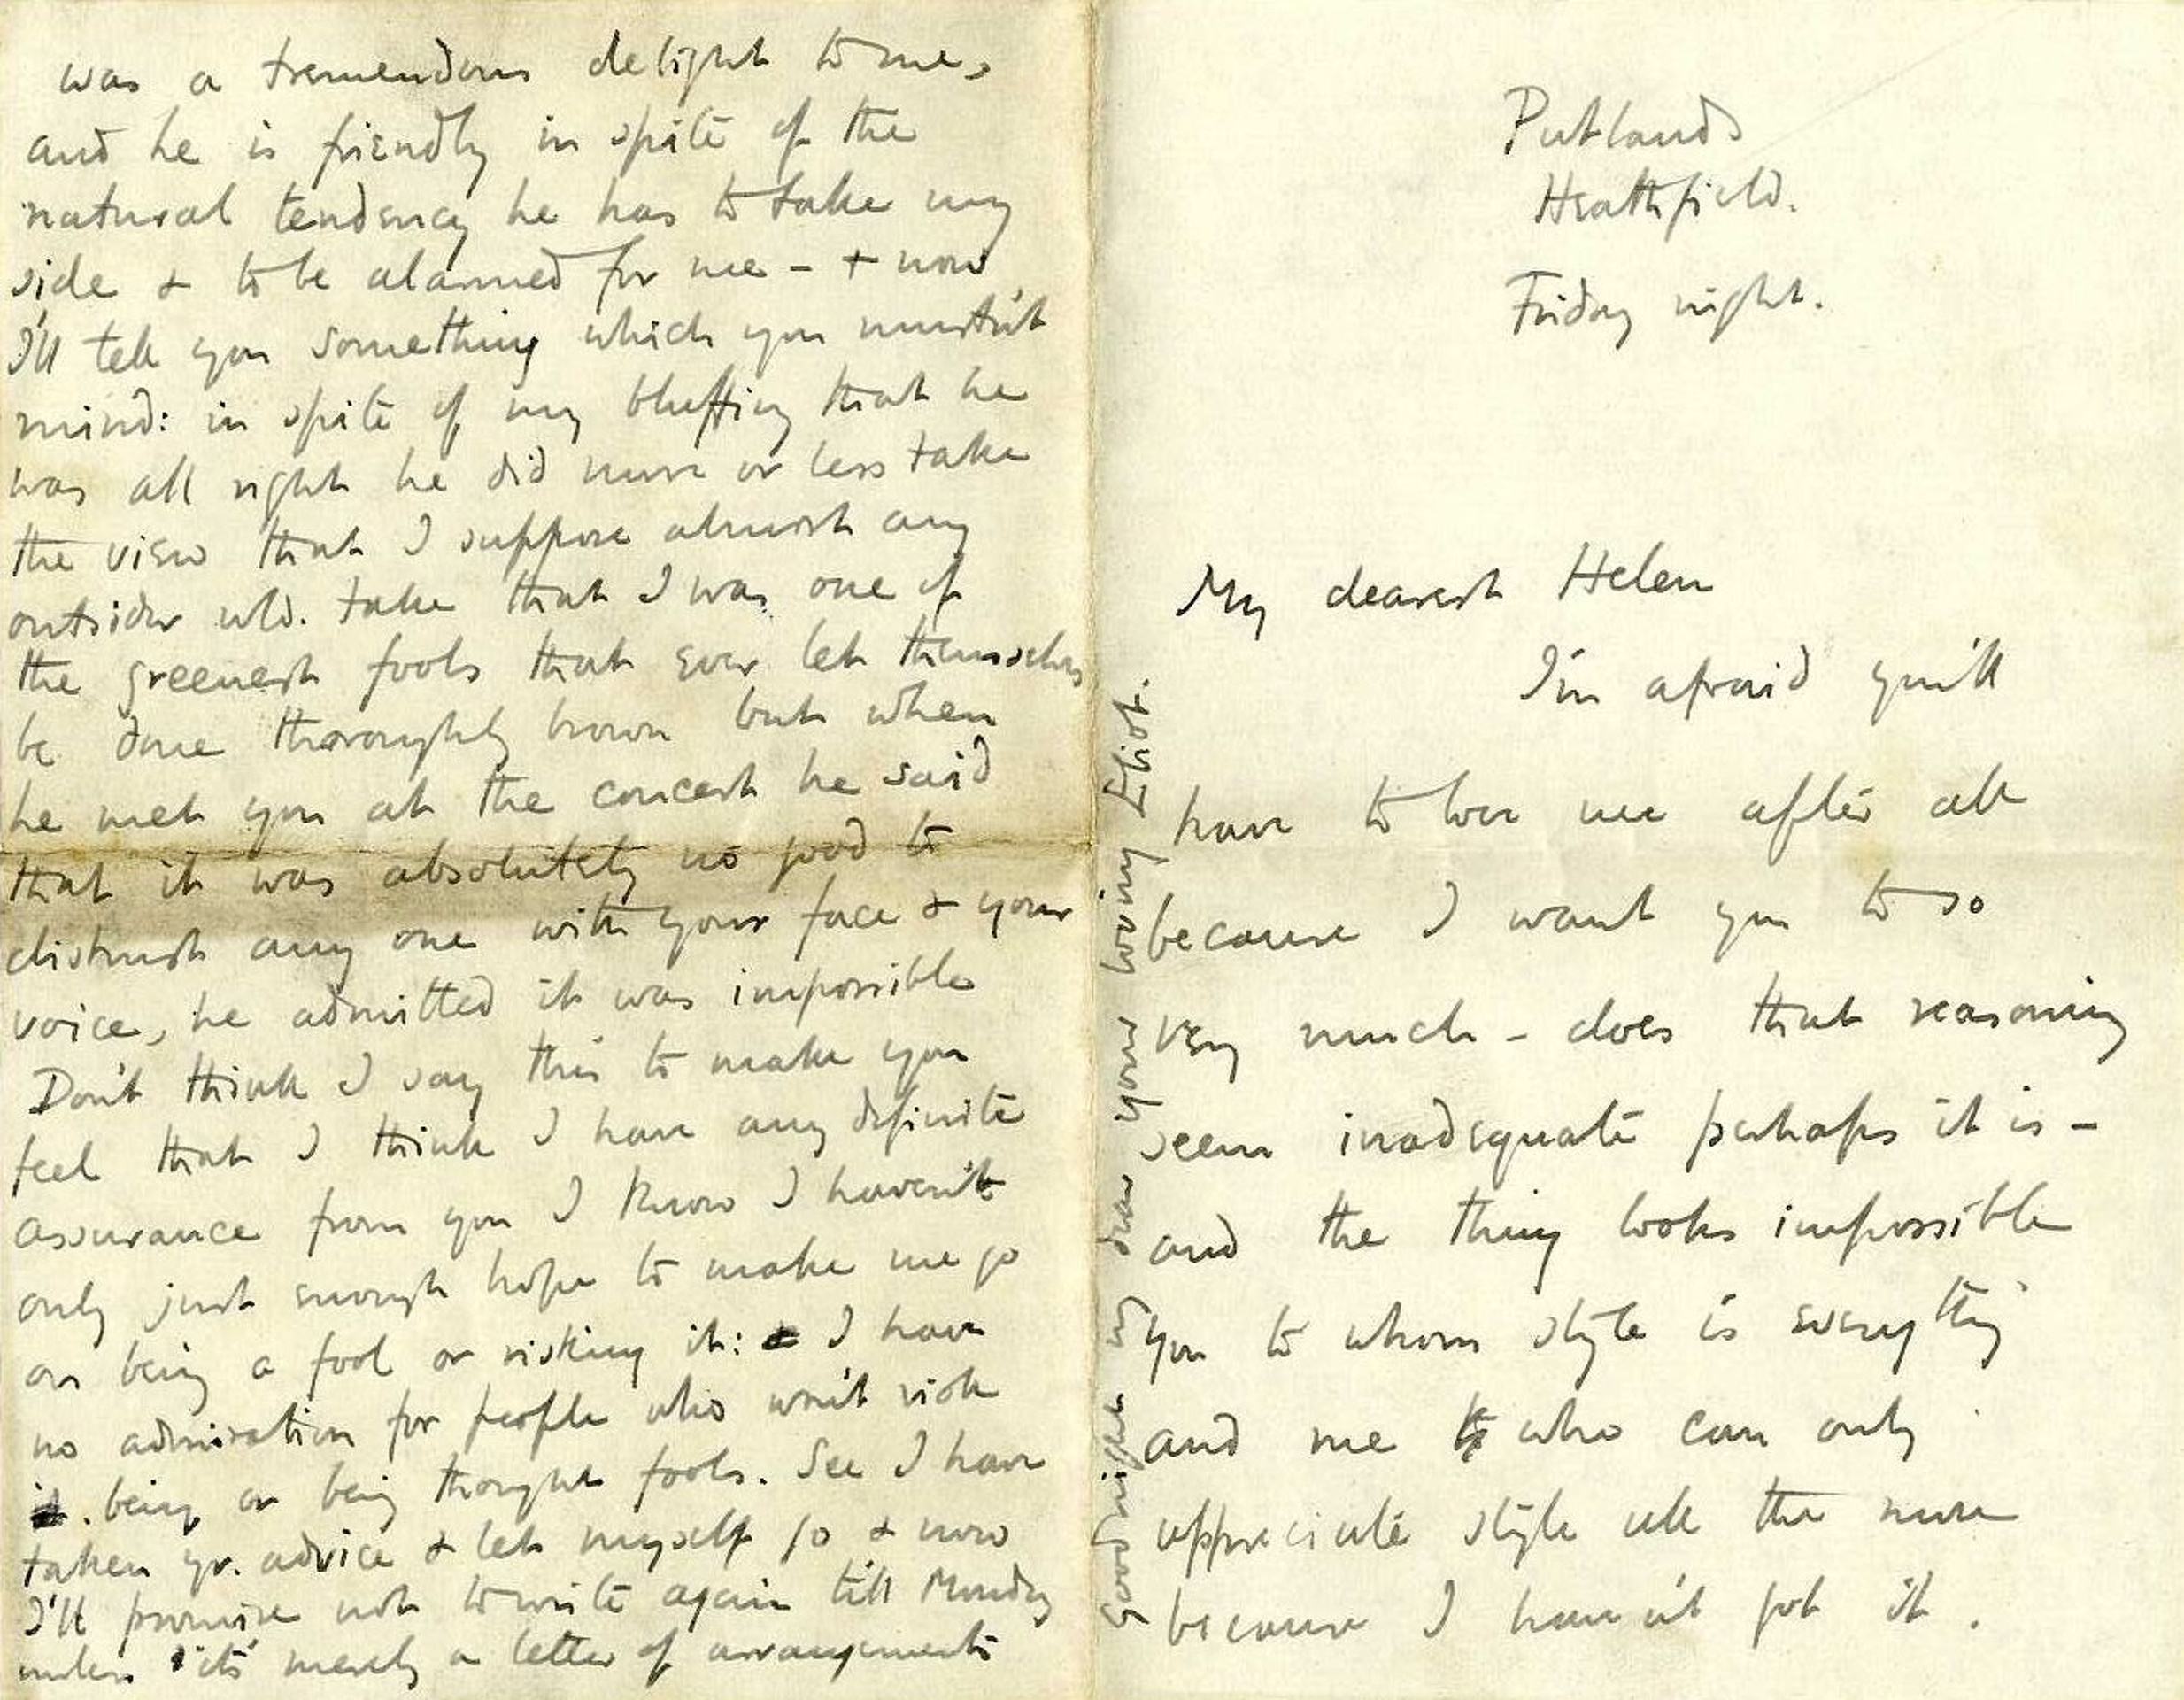 Putlands
Heathfield.
Friday night.
My dearest Helen
I'm afraid you'll
have to love me after all
because I want you to so
very much - does that reasoning
seem inadequate perhaps it is -
and the thing looks impossible
you to whom style is everything
and me who can only
appreciate style all the more
because I haven't got it.
was a tremendous delight to me,
and he is friendly in spite of the
natural tendency he has to take my
side & to be alarmed for me - + now
I'll tell you something which you mustn't
mind: in spite of my bluffing that he
was all right he did more or less take
the view that I suppose almost any
outsider wld. take that I was one of
the greenest fools that ever let themselves
be done thoroughly brown but when
he met you at the concert he said
that it was absolutely no good to
distrust any one with your face & your
voice, he admitted it was impossible
Don't think I say this to make you
feel that I think I have any definite
assurance from you I know I haven't
only just enough hope to make me go
on being a fool or risking it: I have
no admiration for people who won't risk
being or being thought fools. See I have
taken yr. advice & let myself go & now
I'll promise not to write again till Monday
unless it's merely a letter of arrangements
Good night my dear yours loving Eliot.